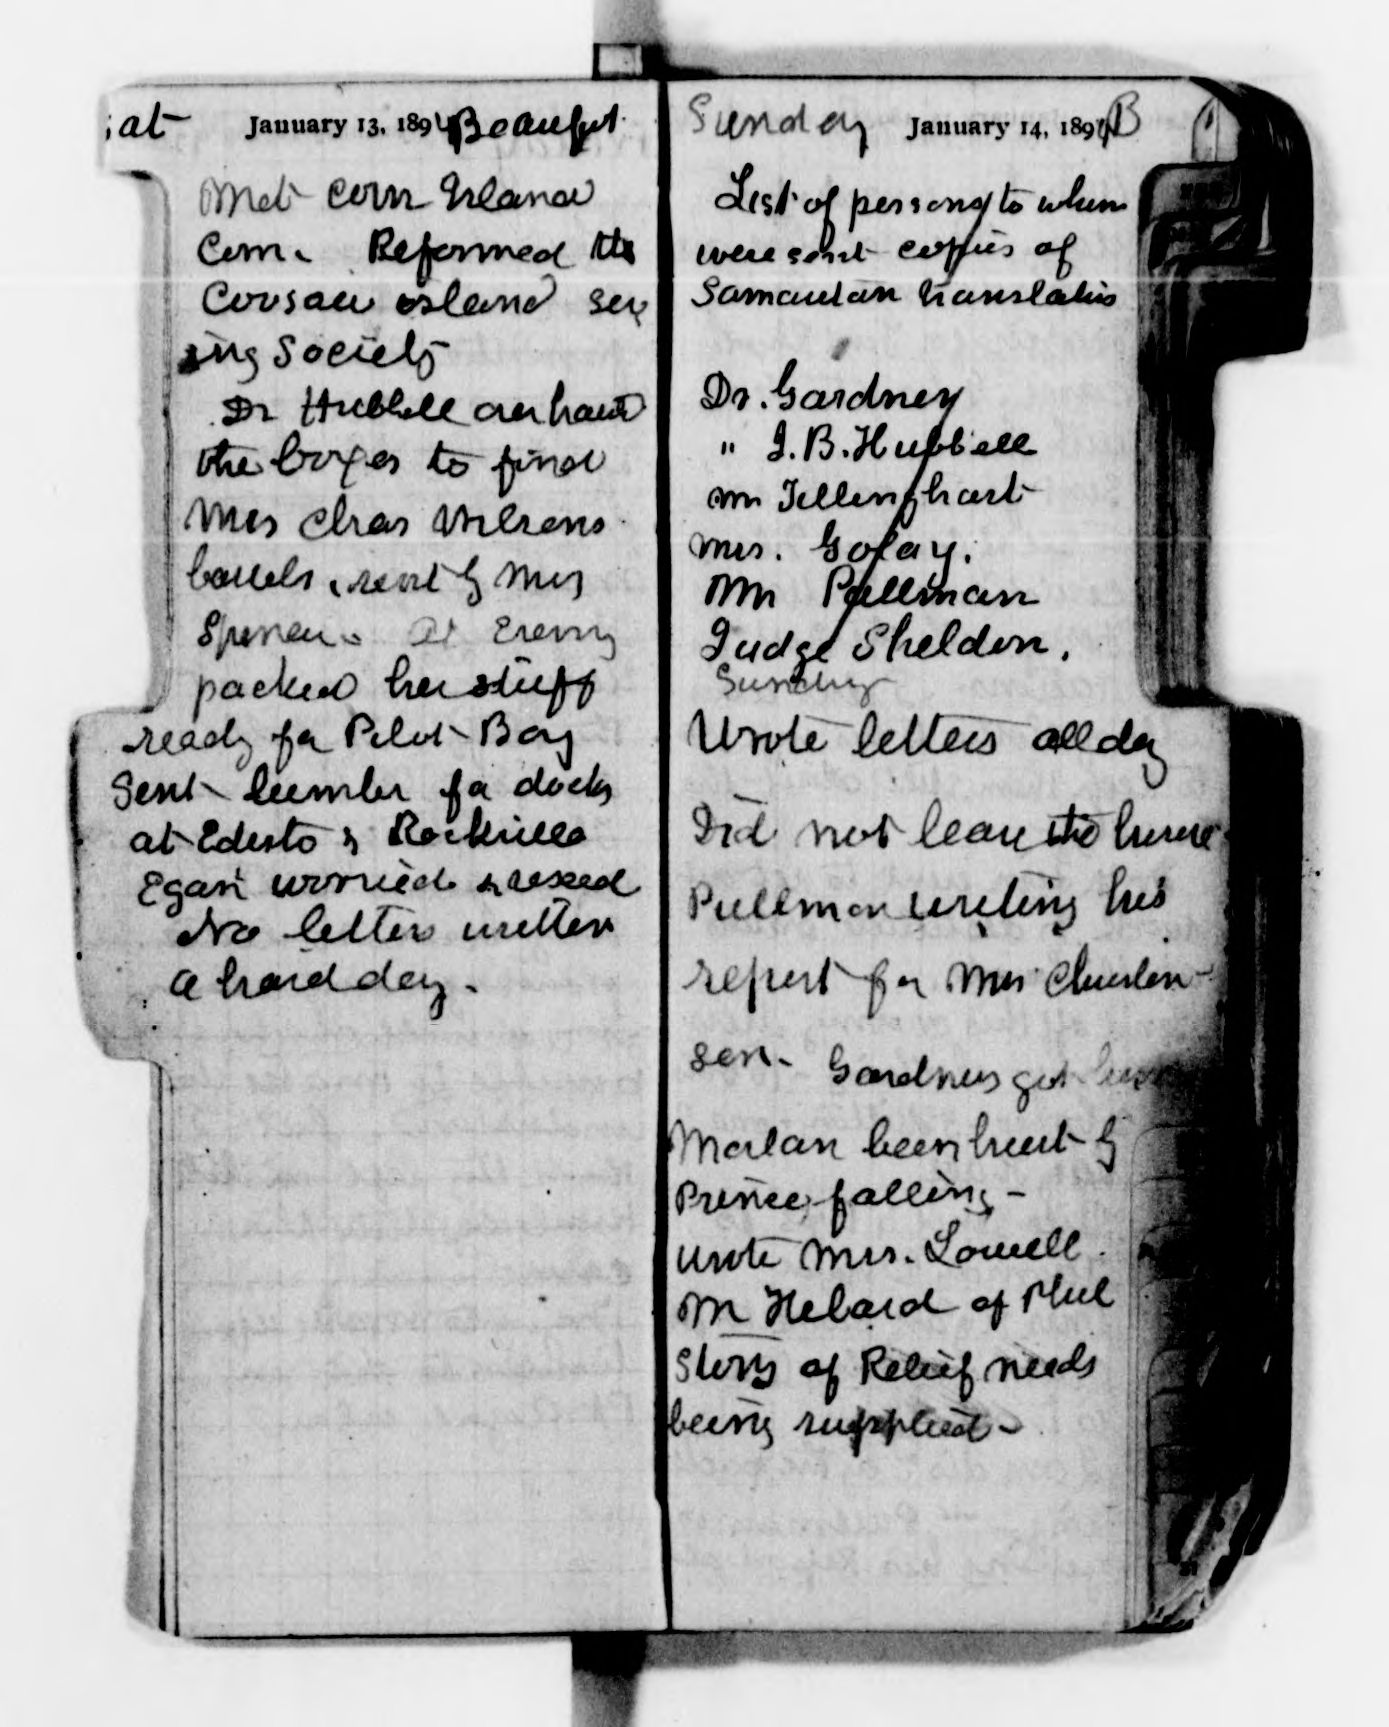 Sat January 13, 1894 Beaufort.
Met Corn Island
Com. Reformed the
Coosaw Island sew
ing Society
Dr Hubbell overhauld
the boxes to find
Mrs Chas Wilsons
barrels, sent by Mrs
Spencer. At Evening
packed her stuff
ready for Pilot Boy
Sent lumber for docks
at Edisto & Rockville
Egan worried & vexed
No letters written
a hard day.
Sunday January 14, 1894 B
List of persons to whom
were sent copies of
Samaritan translatis
Dr. Gardney
" J. B. Hubbell
Mr Tillinghast
Mrs. Golay.
Mr Pullman
Judge Sheldon.
Sunday
Wrote letters all day
Did not leave the house
Pullman writing his
report for Mrs Christen-
sen. Gardners got
Marlan been hurt by
Prince falling -
wrote Mrs. Lowell.
Mr Hebard of Phil
Story of Relief needs
being supplied -